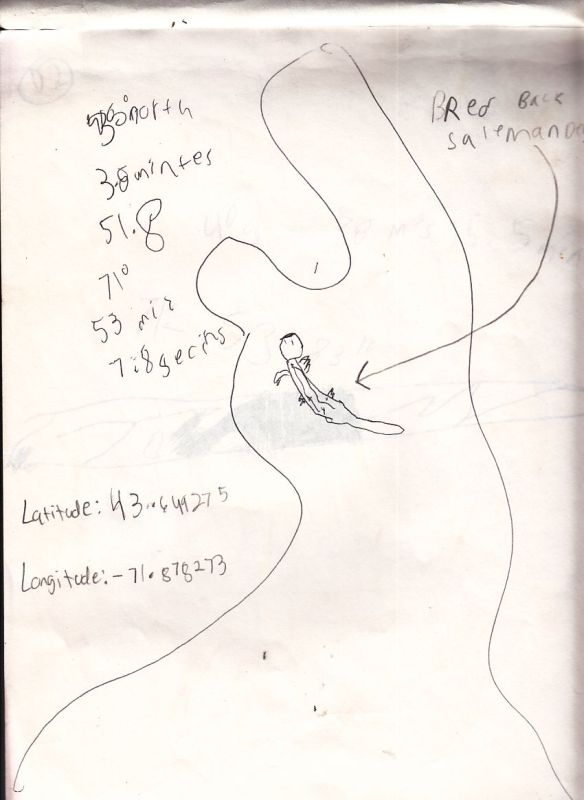 north
38 mintes
51.8
71°
53 min
7.8 secints
BRed Back
Salemander
Latitude: 43.649275
Longitude: -71.878273